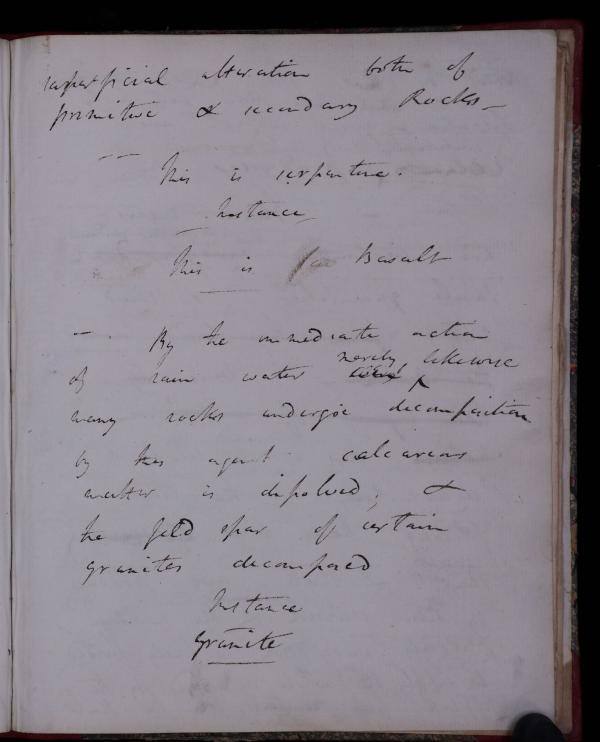 superficial alteration both of
primitive & secondary Rocks –
– – This is serpentine.
Instance
– This is a Basalt
– By the immediate action
of rain water merely, likewise
many rocks undergoe decomposition
by this agent calcareous
matter is dissolved, &
the feld spar of certain
granites decomposed
Instance
Granite